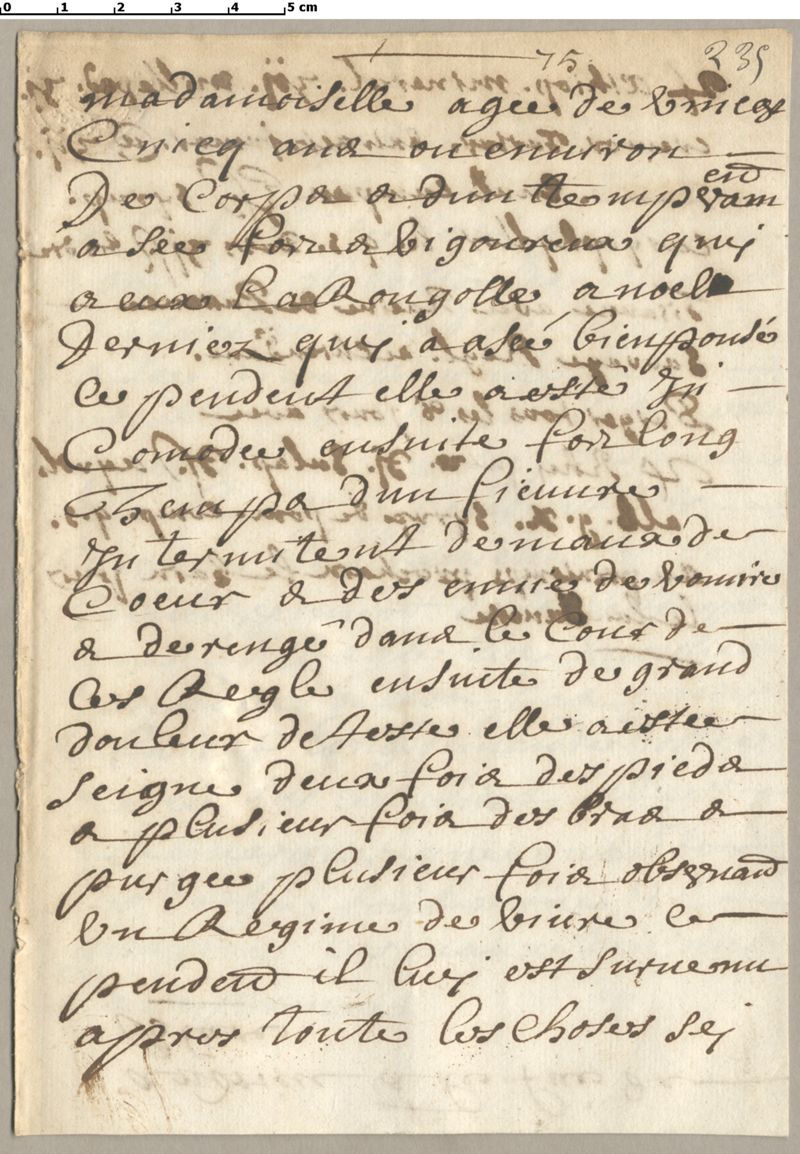 0 1 2 3 4 5 cm
75 235
madamoiselle agee de vnicq
Cnicq ans ou enuiron
De Corps & dun temperam end
asée for & vigoureux quj
a eux La Rougolle a noel
Dernier quj a asé bien pousé
Ce pendent elle a esté In
Comodee ensuite for long
Themps dun fieuure
Intermitent de maux de
Coeur & des enuie de vomire
& derengé dans le Cour de
Ces Regle ensuite de grand
douleur de teste elle a estee
seigne deux fois des pieds
& plusieur fois des bras &
purgee plusieur fois obseruand
vn Regime de viure Ce
pendend il luj est suruenu
apres toute les choses sej